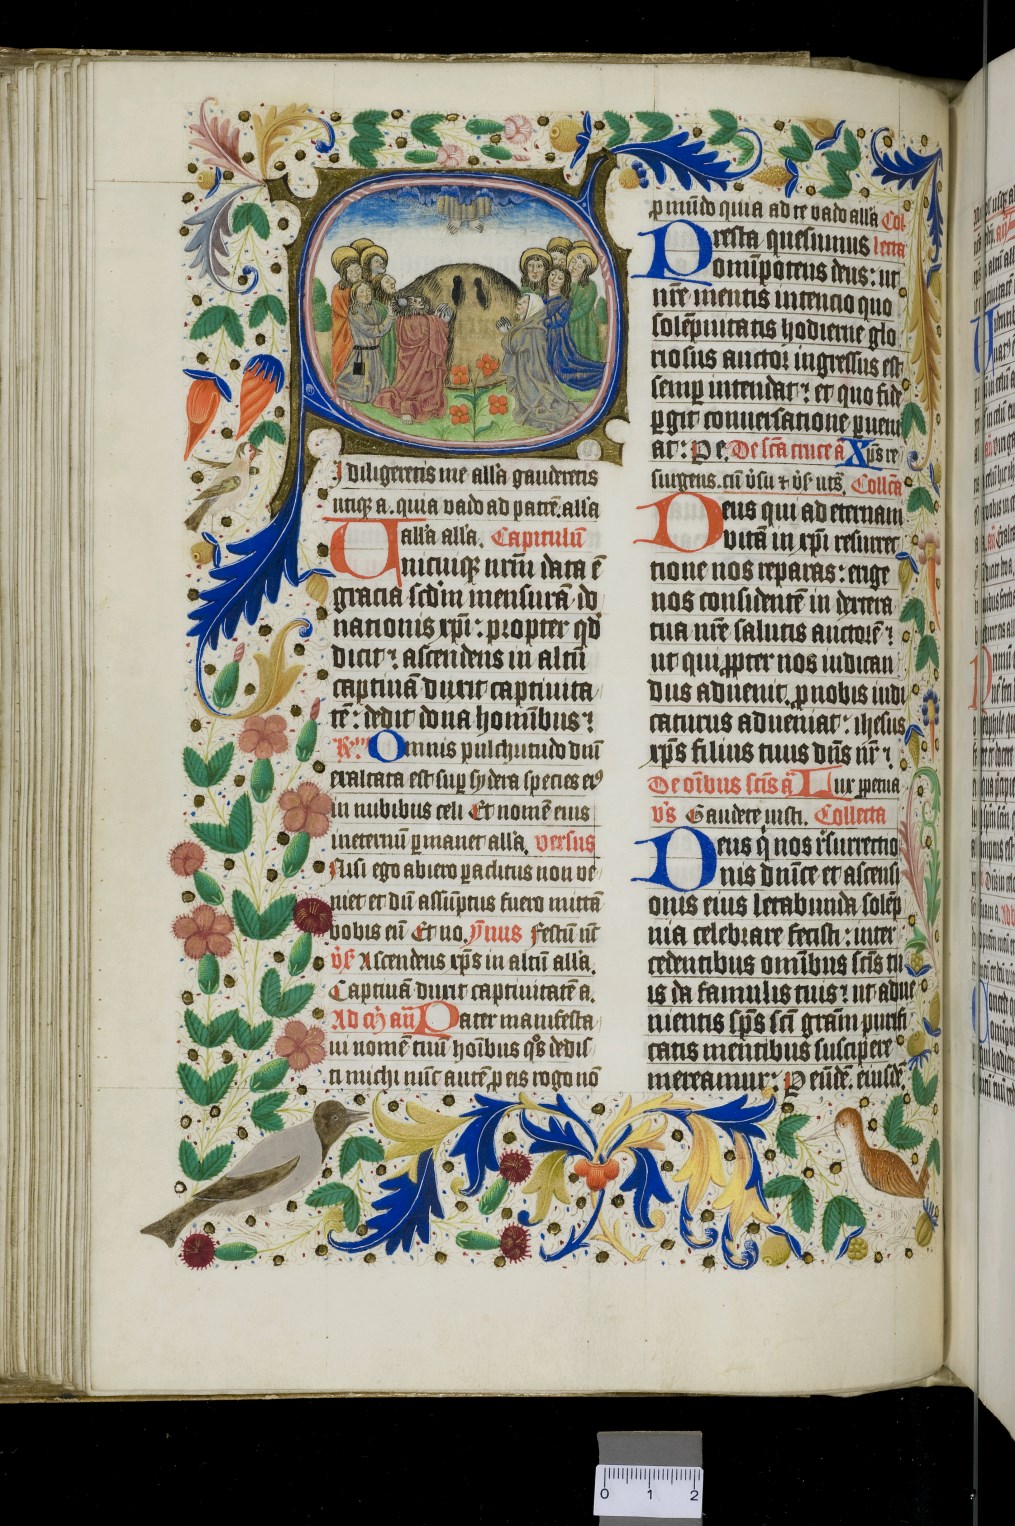 I diligeretis me all'a gauderetis
utiq̃ a. quia vado ad patrẽ. all'a
all'a all'a. Capitulũ
Unicuiq̃ nr̃m data ẽ
gracia scd'm mensurã do
nationis xp̃i: propter qd'
dicit: ascendens in altũ
captiuã duxit captiuita
tẽ: dedit dona hominibus:
Rm̃ Omnis pulchritudo dñi
exaltata est sup̃ sydera species ei9
in nubibus celi Et nomẽ eius
ineternũ p̃manet all'a. versus
Nisi ego abiero paraclitus non ve
niet et dũ assũptus fuero mittã
vobis eũ Et no. ẏmnus Festũ nũ
v̾s Ascendens xp̃s in altũ all'a.
Captiuã duxit captiuitatẽ a.
Ad mã añ Pater manifesta
ui nomẽ tuũ hoĩbus q̃s dedis
ti michi nũc autẽ p̃ eis rogo nõ
p̃ mũdo quia ad te vado all'a Col
Presta quesumus lecta
omĩpotens deus: ut
nr̃e mentis intencio quo
solẽpnitatis hodierne glo
riosus auctor ingressus est
semp̃ intendat: et quo fide
p̃git conuersatione p̃ueni
at: Pe. De scã cruce ã Xp̃s re
surgens. cũ v̾su et v̾s ut s̃. Collcã
Deus qui ad eternam
vitã in xp̃i resurrec
tione nos reparas: erige
nos considentẽ in dextera
tua nr̃e salutis auctorẽ:
ut qui ꝓpter nos iudican
dus aduenit. p̃ nobis iudi
caturus adueniat: ihesus
xp̃s filius tuus dñs nr̃:
De oĩbus scĩs ã Lux ꝑpetua
v̾s Gaudete iusti. Collecta
Deus q̃ nos r̾surrectio
nis dñice et ascensi
onis eius letabunda solẽp
nia celebrare fecisti: inter
cedentibus omĩbus scĩs tu
is da famulis tuis: ut adue
nientis sp̃s scĩ gr̃am purifi
catis mentibus suscipere
mereamur: P eũdẽ. eiusdẽ
0 1 2